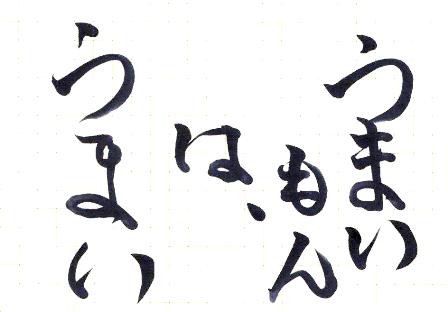 うまい
もん
は、
うまい